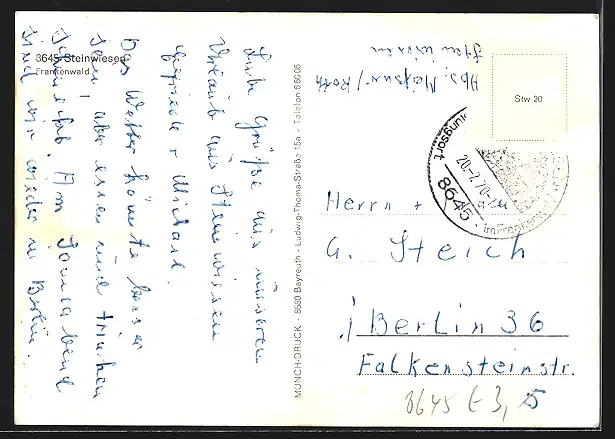 8645 Steinwiesen
Frankenwald
Liebe Grüße aus unseren
Urlaub aus Steinwiesen
Michael.
Das Wetter könnte besser
sein, aber essen und trinken
Am Sonnabend
sind wir wieder in Berlin.
MÜNCH-DRUCK · 8580 Bayreuth · Ludwig-Thoma-Straße 15a · Telefon 6 60 05
Abs. Roth
Steinwiesen
Stw 20
8645
20.-7.70
im Frankenwald
Herrn +
G. Steich
1 Berlin 36
Falkensteinstr.
8645 E 3,